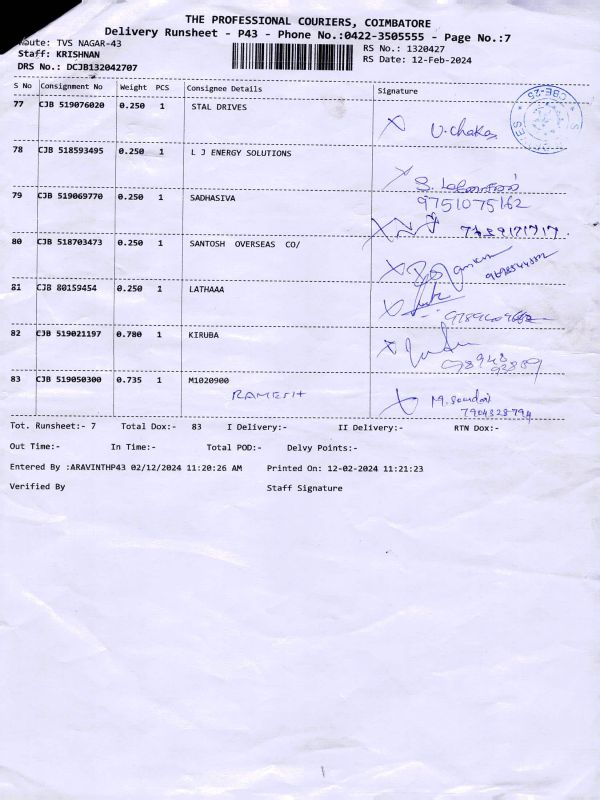 THE PROFESSIONAL COURIERS, COIMBATORE
Delivery Runsheet - P43 - Phone No.:0422-3505555 - Page No.:7
Route: TVS NAGAR-43
RS No.: 1320427
Staff: KRISHNAN
RS Date: 12-Feb-2024
DRS No.: DCJB132042707
S No Consignment No Weight PCS Consignee Details Signature
77 CJB 519076020 0.250 1 STAL DRIVES
78 CJB 518593495 0.250 1 L J ENERGY SOLUTIONS
79 CJB 519069770 0.250 1 SADHASIVA
9751075162
80 CJB 518703473 0.250 1 SANTOSH OVERSEAS CO/
81 CJB 80159454 0.250 1 LATHAAA
82 CJB 519021197 0.780 1 KIRUBA
83 CJB 519050300 0.735 1 M1020900
RAMESH
7904328794
Tot. Runsheet:- 7 Total Dox:- 83 I Delivery:- II Delivery:- RTN Dox:-
Out Time:- In Time:- Total POD:- Delvy Points:-
Entered By :ARAVINTHP43 02/12/2024 11:20:26 AM Printed On: 12-02-2024 11:21:23
Verified By Staff Signature